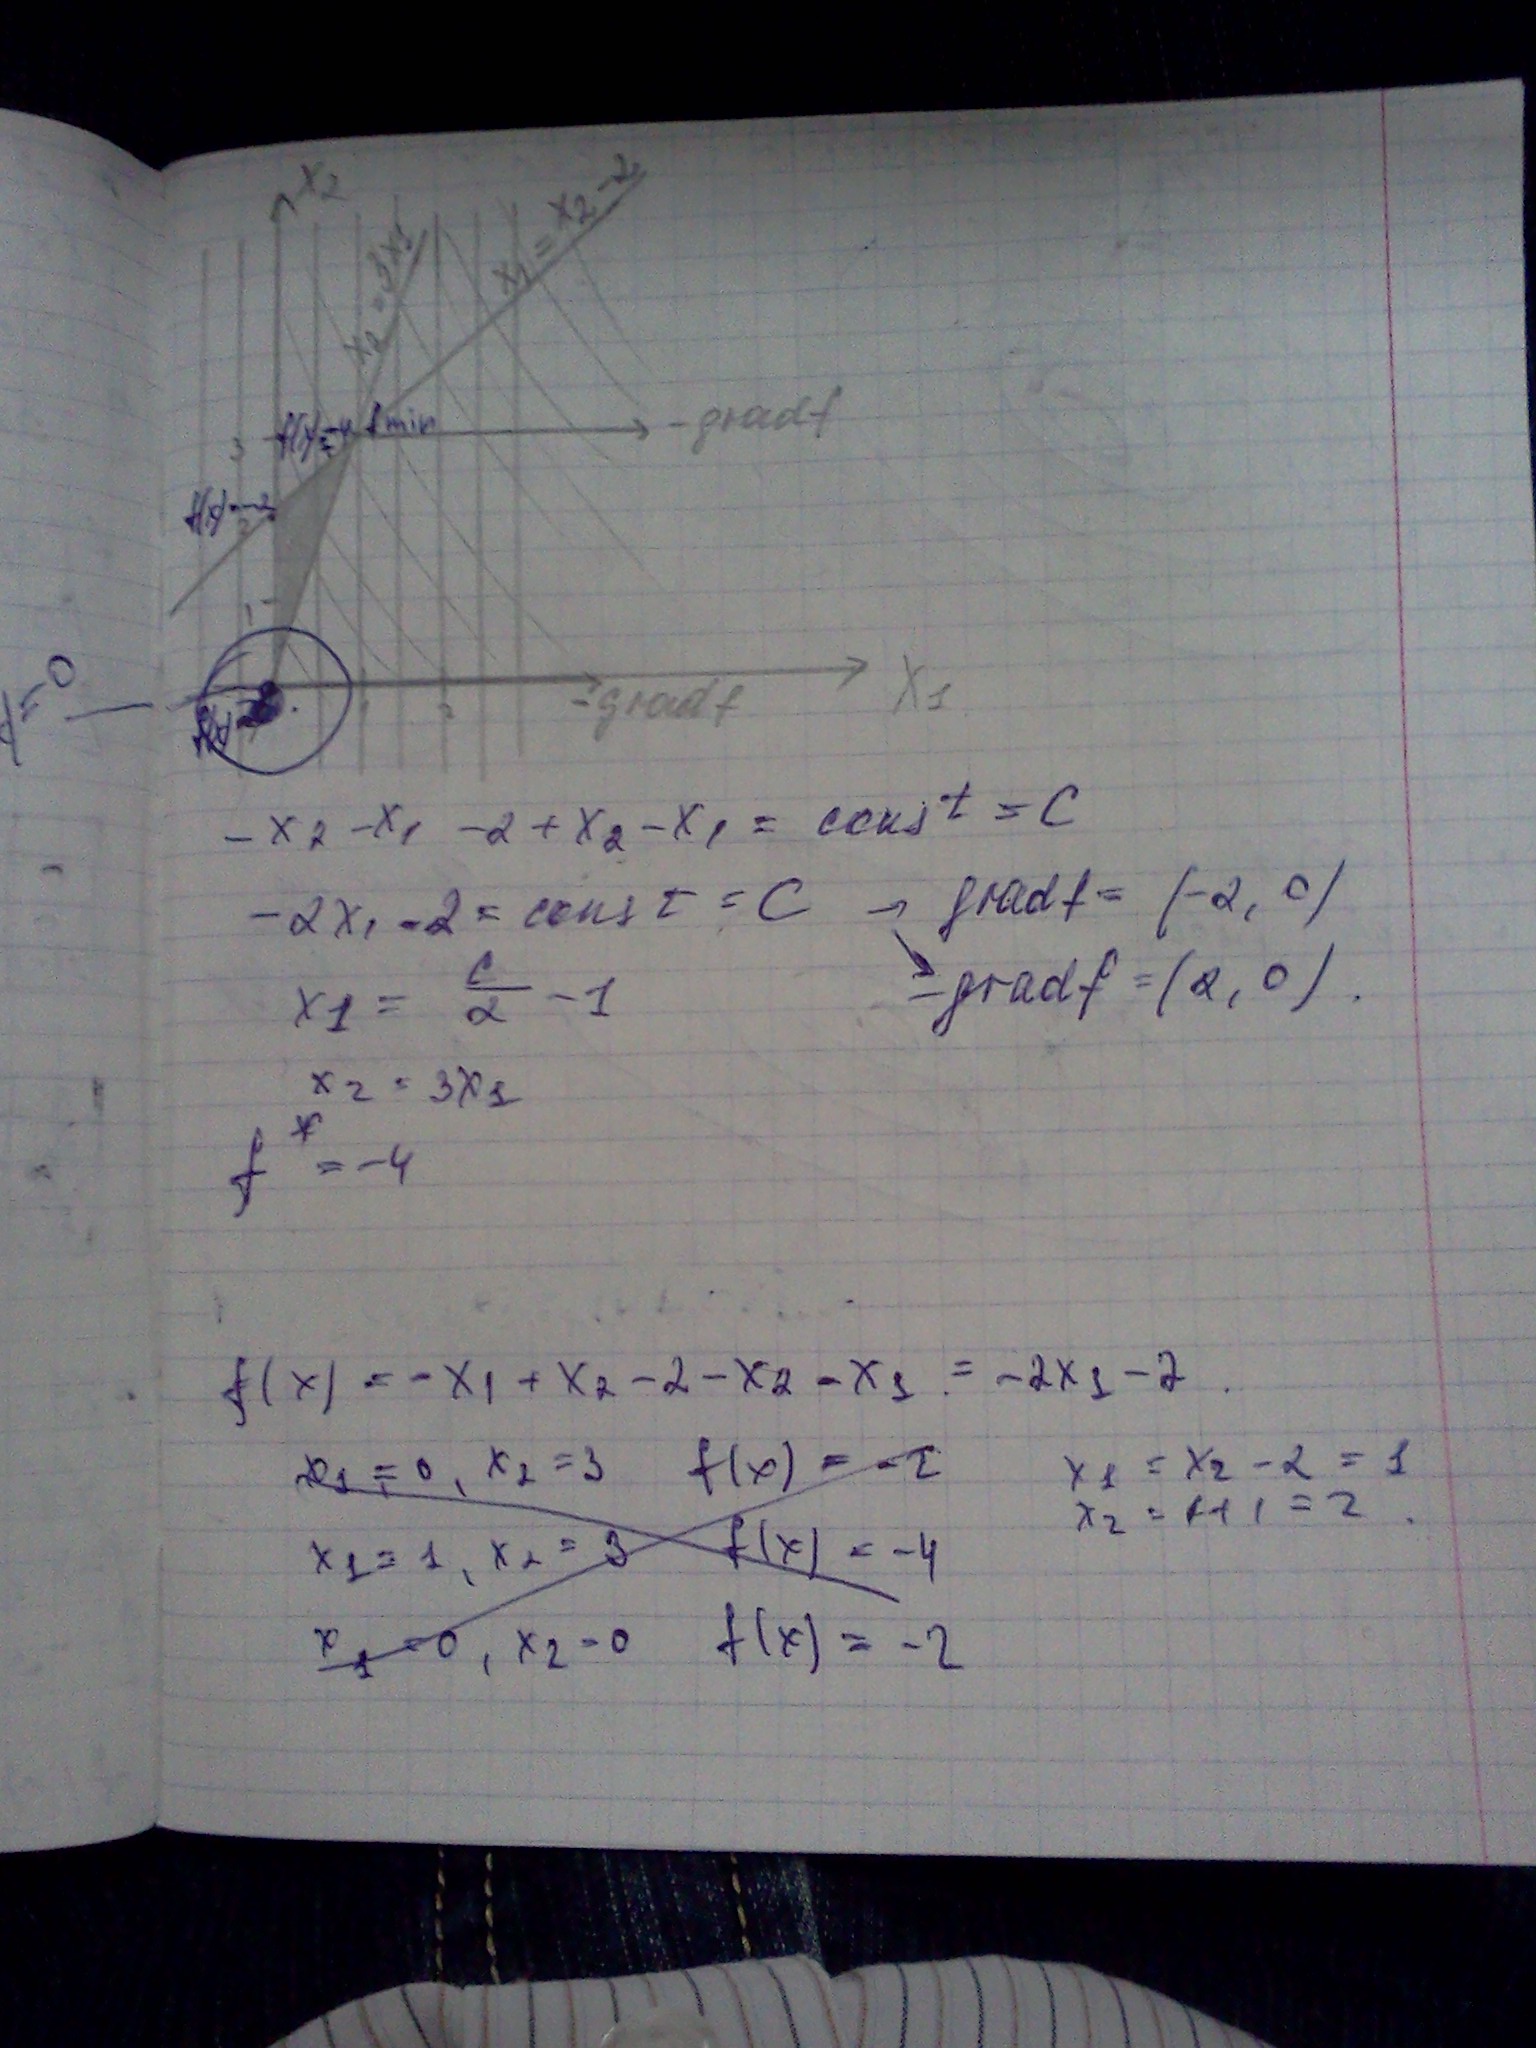 x2
x2 = 3x1
x1 = x2 - 2
f(x) = -4 fmin
-gradf
3
f(x) = -2
2
1
=0
1 2
-gradf
x1
-x2 - x1 - 2 + x2 - x1 = const = C
-2x1 - 2 = const = C → gradf = (-2, 0)
x1 = C/2 - 1
-gradf = (2, 0).
x2 = 3x1
f* = -4
f(x) = -x1 + x2 - 2 - x2 - x1 = -2x1 - 2.
x1 = 0, x2 = 3 f(x) = -2
x1 = x2 - 2 = 1
x2 = 1+1 = 2.
x1 = 1, x2 = 3 f(x) = -4
x1 = 0, x2 = 0 f(x) = -2